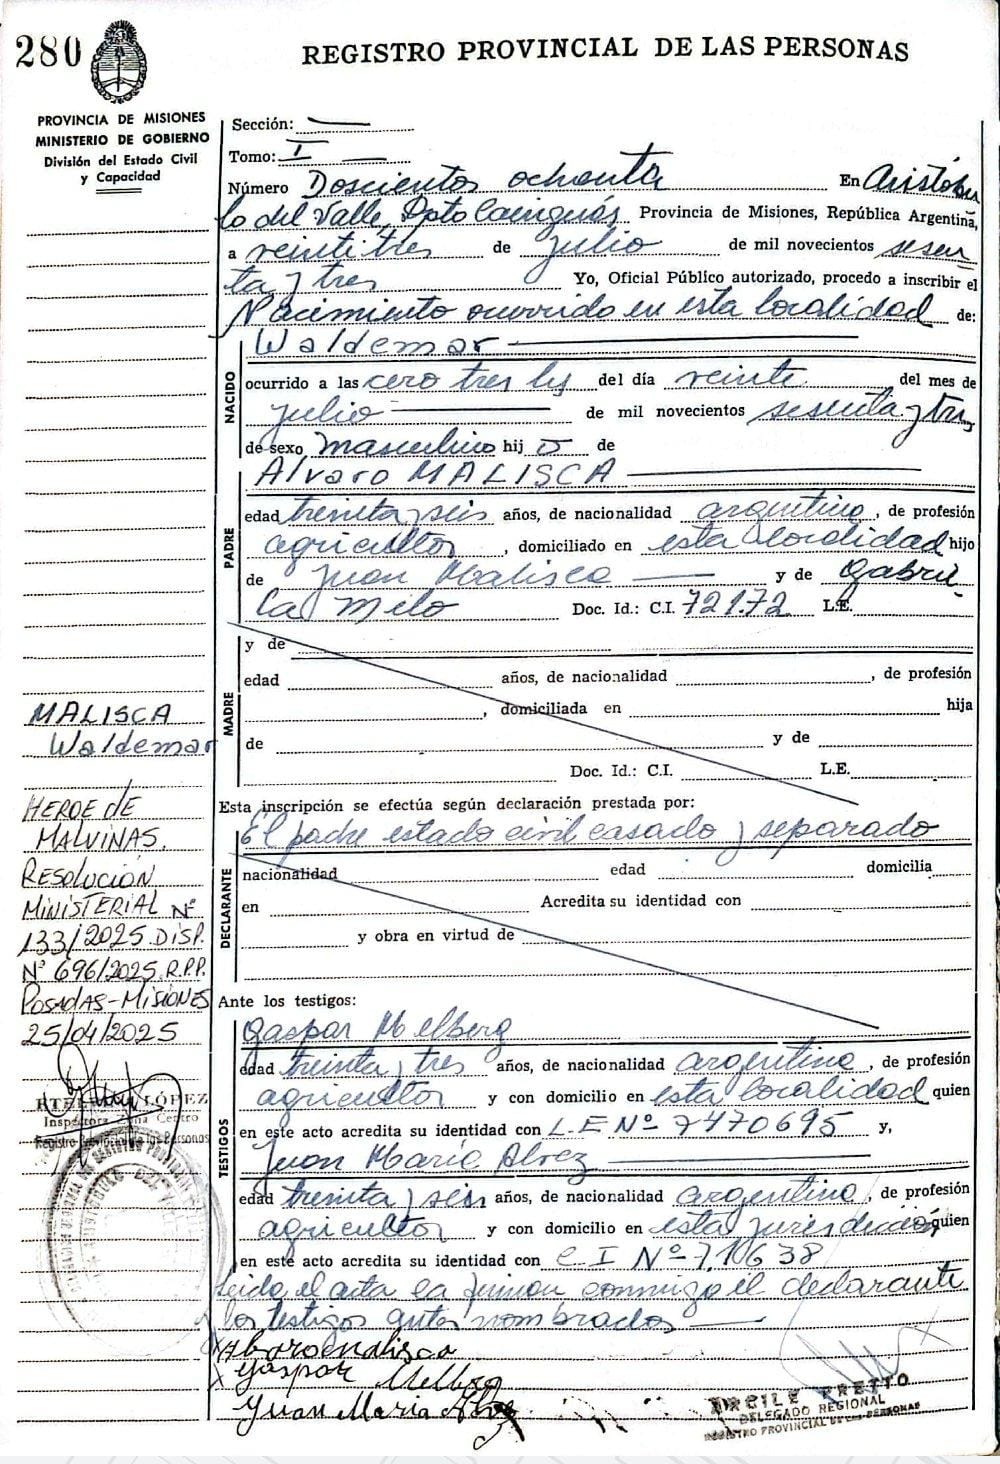 280
REGISTRO PROVINCIAL DE LAS PERSONAS
PROVINCIA DE MISIONES
MINISTERIO DE GOBIERNO
División del Estado Civil
y Capacidad
Sección:
Tomo: I
Número Doscientos ochenta En Aristóbu
lo del Valle, Dpto Cainguás Provincia de Misiones, República Argentina,
a veintitres de julio de mil novecientos sesen
ta y tres Yo, Oficial Público autorizado, procedo a inscribir el
Nacimiento ocurrido en esta localidad de:
NACIDO
Waldemar
ocurrido a las cero tres hs del día veinte del mes de
julio de mil novecientos sesenta y tres
de sexo masculino hijo de
Alvaro MALISCA
PADRE
edad treinta y seis años, de nacionalidad argentino, de profesión
agricultor, domiciliado en esta localidad hijo
de Juan Malisca y de Gabrie
la Melo Doc. Id.: C.I. 72172 L.E.
MADRE
y de
edad años, de nacionalidad , de profesión
, domiciliada en hija
de y de
Doc. Id.: C.I. L.E.
Esta inscripción se efectúa según declaración prestada por:
DECLARANTE
El padre estado civil casado y separado
nacionalidad edad domicilia
en Acredita su identidad con
y obra en virtud de
Ante los testigos:
TESTIGOS
Gaspar Melberg
edad treinta y tres años, de nacionalidad argentino, de profesión
agricultor y con domicilio en esta localidad quien
en este acto acredita su identidad con L.E Nº 7470695 y,
Juan María Alvez
edad treinta y seis años, de nacionalidad argentino, de profesión
agricultor y con domicilio en esta jurisdicción quien
en este acto acredita su identidad con C.I Nº 710638
leida el acta la firman conmigo el declarante
y los testigos antes nombrados
Gaspar
Juan Maria
PRETTO
DELEGADO REGIONAL
REGISTRO PROVINCIAL DE LAS PERSONAS
MALISCA
Waldemar
HEROE de
MALVINAS.
RESOLUCIÓN
MINISTERIAL Nº
133/2025 DISP.
Nº 696/2025 R.P.P.
POSADAS-MISIONES
25/04/2025
LÓPEZ
Inspectora Zona Centro
Registro Provincial de las Personas